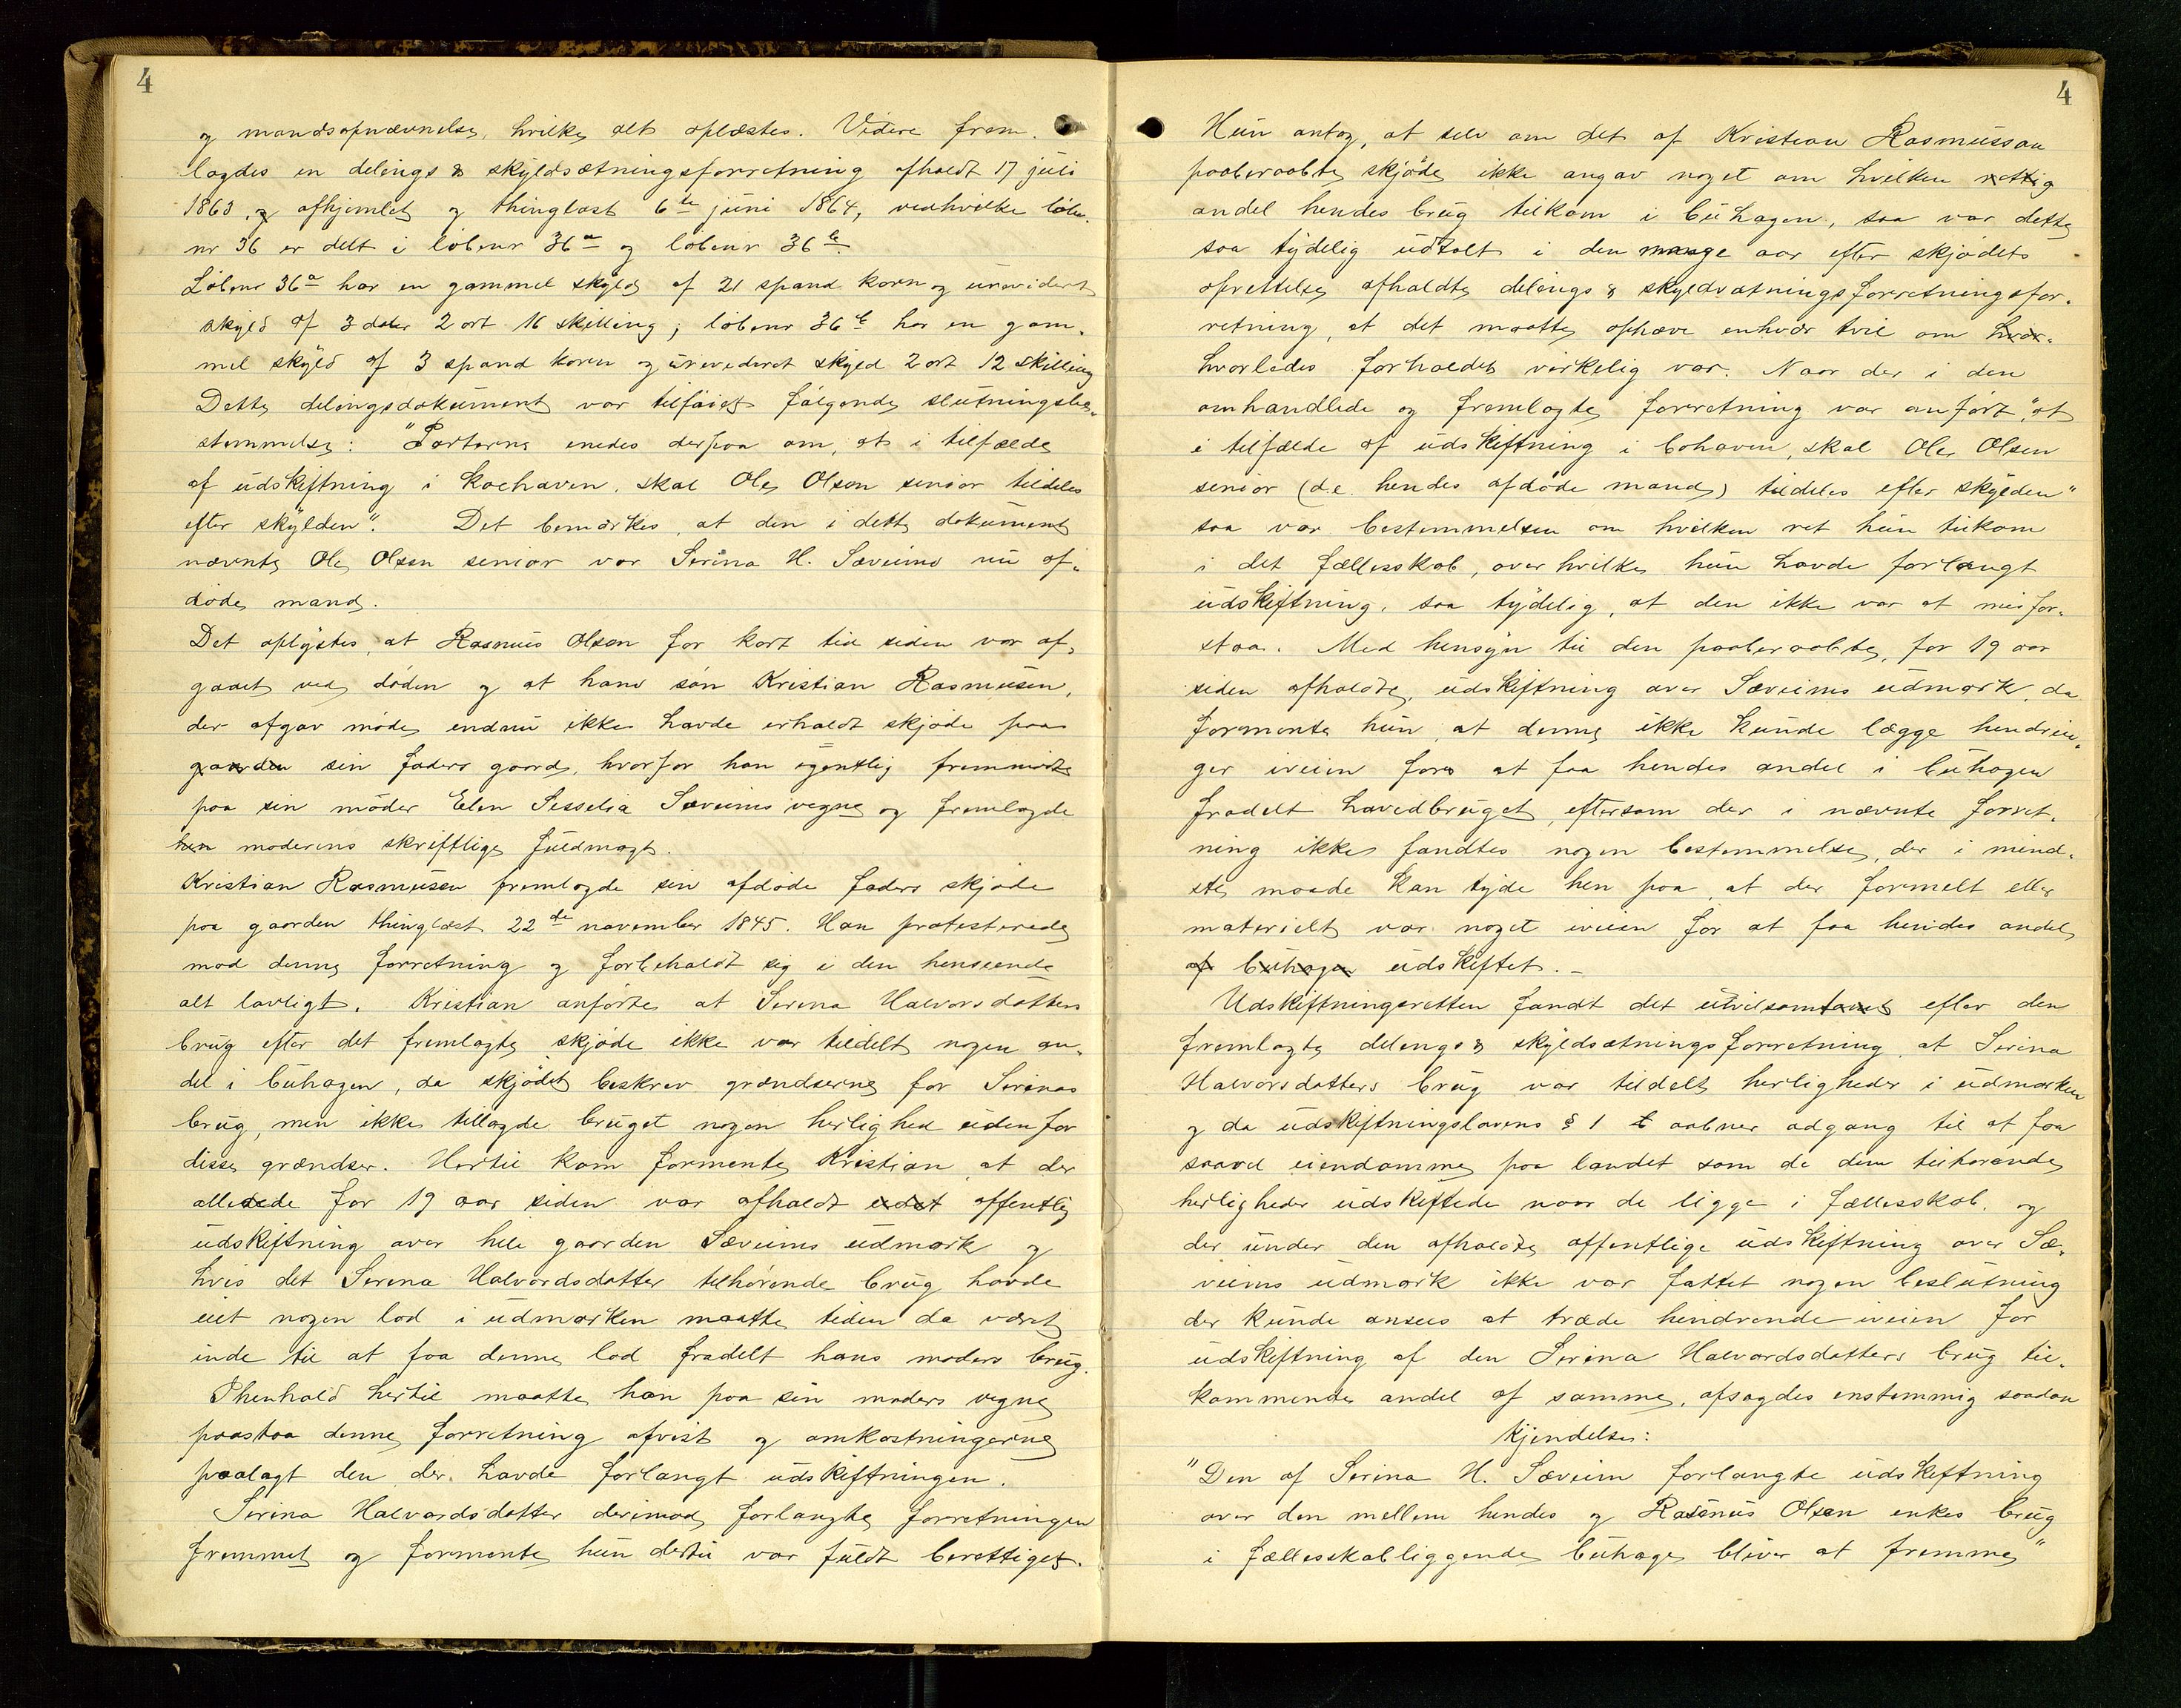 4
og mandsopnævnelse, hvilke alt oplæstes. Videre frem-
lagdes en delings & skyldsætningsforretning afholdt 17 juli
1863, og afhjemlet og thinglæst 6te juni 1864, vedhvilke løbe-
nr 36 er delt i løbenr 36a og løbenr 36b.
Løbenr 36a har en gammel skyld af 21 spand korn og urevideret
skyld af 3 daler 2 ort 16 skilling; løbenr 36b har en gam-
mel skyld af 3 spand korn og urevideret skyld 2 ort 12 skilling
Dette delingsdokument var tilføiet følgende slutningsbe-
stemmelse: "Parterne enedes derpaa om, at i tilfælde
af udskiftning i Kochaven, skal Ole Olsen senior tildeles
efter skylden". Det bemærkes, at den i dette dokument
nævnte Ole Olsen senior var Serina H. Sæveims nu af-
døde mand.
Det oplystes, at Rasmus Olsen for kort tid siden var af-
gaaet ved døden og at hans søn Kristian Rasmusen,
der afgav møde, endnu ikke havde erholdt skjøde paa
gaarden sin faders gaard, hvorfor han egentlig fremmødte
paa sin moder Elen Sesselia Sæveims vegne og fremlagde
hen moderens skriftlige fuldmagt.
Kristian Rasmusen fremlagde sin afdøde faders skjøde
paa gaarden thinglæst 22de november 1845. Han protesterede
mod denne forretning og forbeholdt sig i den henseende
alt lovligt. Kristian anførte at Serina Halvorsdatters
brug efter det fremlagte skjøde ikke var tildelt nogen an-
del i buhagen, da skjødet beskrev grændserne for Serinas
brug, men ikke tillagde bruget nogen herlighed udenfor
disse grændser. Hertil kom formente Kristian, at der
allerede for 19 aar siden var afholdt udst offentlig
udskiftning over hele gaarden Sæveims udmark og
hvis det Serina Halvordsdatter tilhørende brug havde
eiet nogen lod i udmarken maatte tiden da været
inde til at faa denne lod fradelt hans moders brug.
I henhold hertil maatte han paa sin moders vegne
paastaa denne forretning afvist og omkostningerne
paalagt den der havde forlangt udskiftningen.
Serina Halvordsdatter derimod forlangte forretningen
fremmet og formente hun dertil var fuldt berettiget.
4
Hun antog, at selv om det af Kristian Rasmussen
paaberaabte skjøde ikke angav noget om hvilken rettig
andel hendes brug tilkom i buhagen, saa var dette
saa tydelig udtalt i den mange aar efter skjødets
oprettelse afholdte delings & skyldsætningsforretningsfor-
retning, at det maatte ophæve enhver tvil om hvor-
hvorledes forholdet virkelig var. Naar der i den
omhandlede og fremlagte forretning var anført, "at
i tilfælde af udskiftning i bohaven, skal Ole Olsen
senior (d.e. hendes afdøde mand) tildeles efter skylden"
saa var bestemmelsen om hvilken ret hun tilkom
i det fællesskab, over hvilke hun havde forlangt
udskiftning, saa tydelig, at den ikke var at misfor-
staa. Med hensyn til den paaberaabte, for 19 aar
siden afholdte, udskiftning over Sæveims udmark, da
formente hun at denne ikke kunde lægge hindrin-
ger iveien fors at faa hendes andel i buhagen
fradelt hovedbruget, eftersom der i nævnte forret-
ning ikke fandtes nogen bestemmelse, der i mind-
ste maade kan tyde hen paa, at der formelt eller
materielt var noget iveien for at faa hendes andel
af buhagen udskiftet. –
Udskiftningsretten fandt det utvilsomt efter den
fremlagte delings & skyldsætningsforretning, at Serina
Halvorsdatters brug var tildelt herligheder i udmarken
og da udskiftningslovens § 1 t aabner adgang til at faa
saavel eiendomme paa landet som de dem tilhørende
herligheder udskiftede naar de ligge i fællesskab, og
der under den afholdte offentlige udskiftning over Sæ-
veims udmark ikke var fattet nogen beslutning
der kunde ansees at træde hindrende iveien for
udskiftning af den Serina Halvordsdatters brug til-
kommende andel af samme, afsagdes enstemmig saadan
Kjendelse:
"Den af Serina H. Sæveim forlangte udskiftning
over den mellem hendes og Rasmus Olsen enkes brug
i fællesskabliggende buhage bliver at fremme"